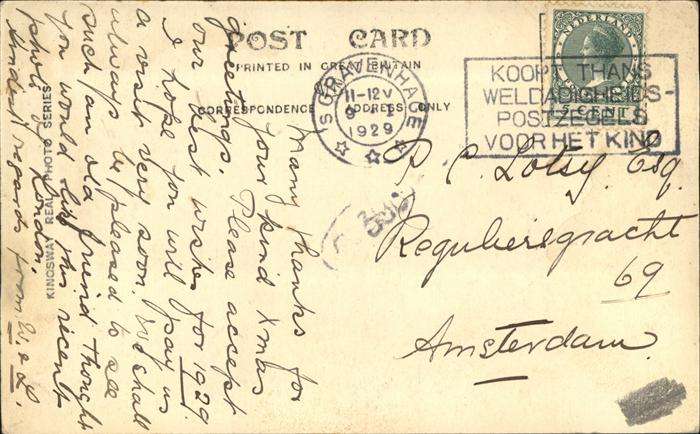 POST CARD
PRINTED IN GREAT BRITAIN
CORRESPONDENCE ADDRESS ONLY
KINGSWAY REAL PHOTO SERIES
NEDERLAND
5 CENT
'SGRAVENHAGE
11-12V
1929
KOOPT THANS
WELDADIGHEIDS-
POSTZEGELS
VOOR HET KIND
P. C. Lotsy Esq.
Reguliersgracht
69
Amsterdam.
Many thanks for
your kind Xmas
greetings. Please accept
our best wishes for 1929.
I hope you will pay us
a visit very soon. We shall
always be pleased to see
such an old friend. Thought
you would like this recent
photo of London.
Kindest regards from